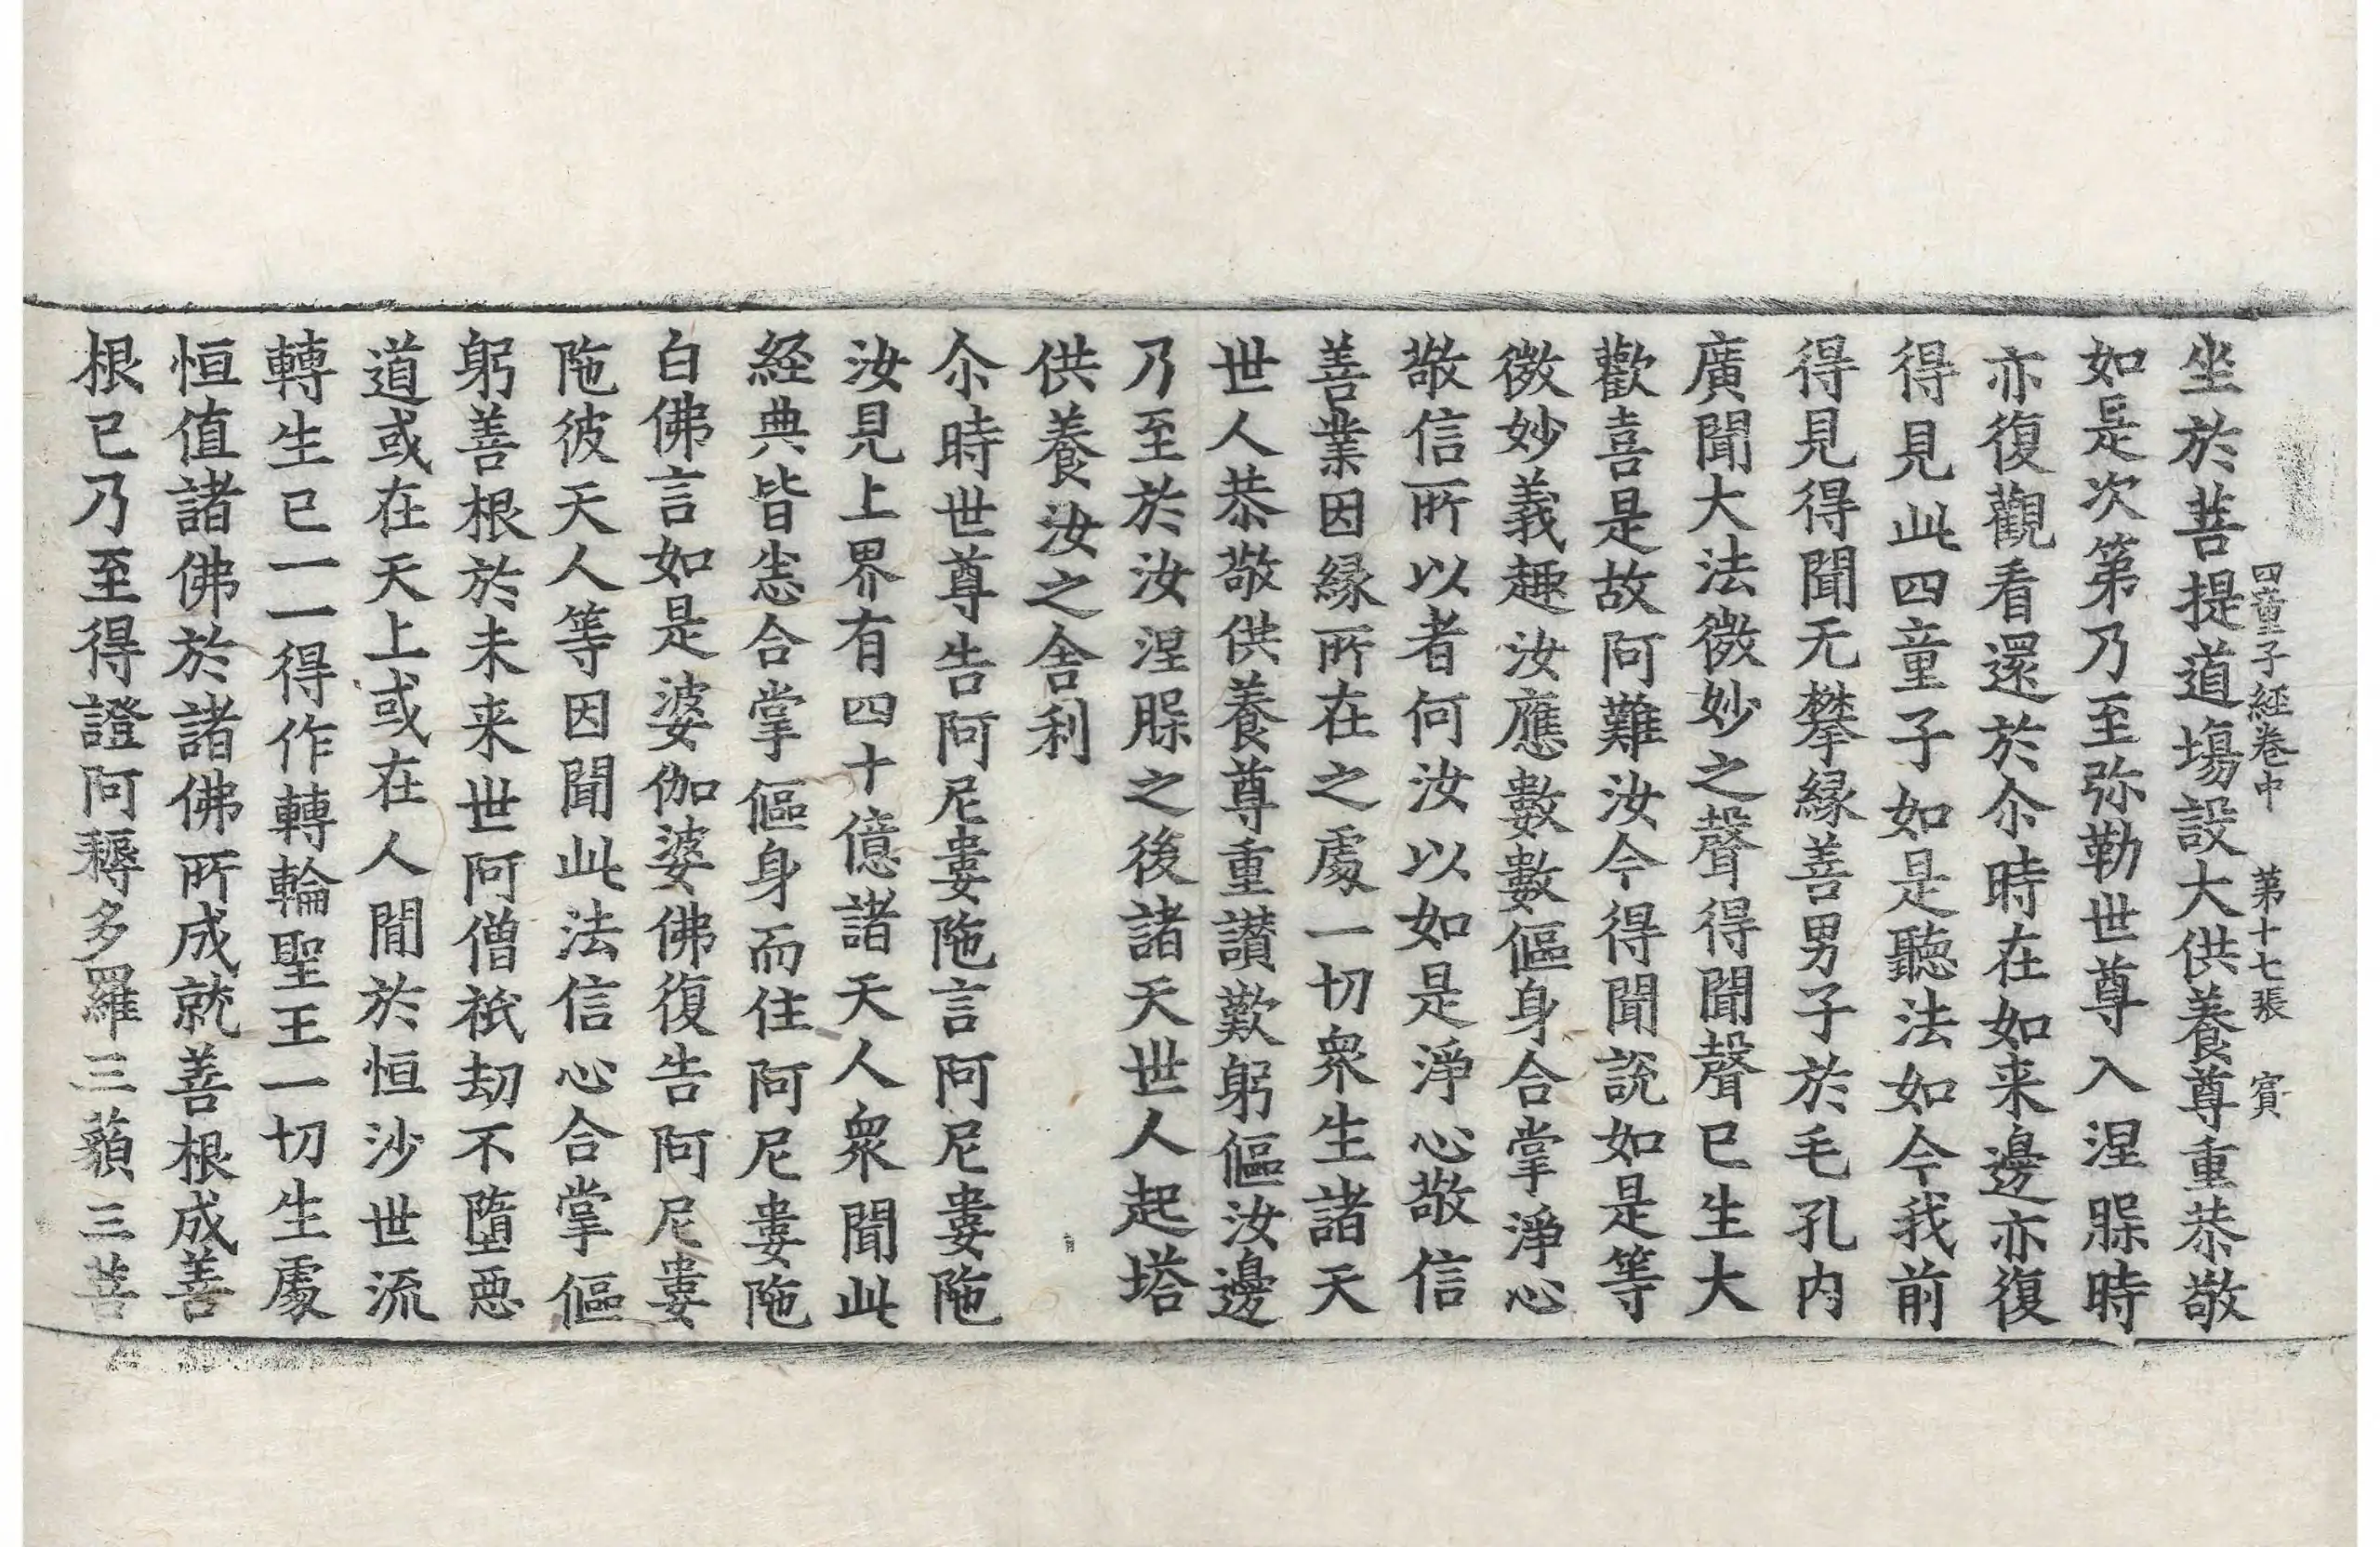 四童子經卷中 第十七張 賓
坐於菩提道場設大供養尊重恭敬
如是次第乃至弥勒世尊入涅槃時
亦復觀看還於尒時在如来邊亦復
得見此四童子如是聽法如今我前
得見得聞无攀緣善男子於毛孔内
廣聞大法微妙之聲得聞聲已生大
歡喜是故阿難汝今得聞說如是等
微妙義趣汝應數數傴身合掌淨心
敬信所以者何汝以如是淨心敬信
善業因緣所在之處一切衆生諸天
世人恭敬供養尊重讚歎躬傴汝邊
乃至於汝涅槃之後諸天世人起塔
供養汝之舍利
尒時世尊告阿尼婁陁言阿尼婁陁
汝見上界有四十億諸天人衆聞此
経典皆悉合掌傴身而住阿尼婁陁
白佛言如是婆伽婆佛復告阿尼婁
陁彼天人等因聞此法信心合掌傴
躬善根於未来世阿僧祇劫不墮惡
道或在天上或在人間於恒沙世流
轉生已一一得作轉輪聖王一切生處
恒值諸佛於諸佛所成就善根成善
根已乃至得證阿耨多羅三藐三菩